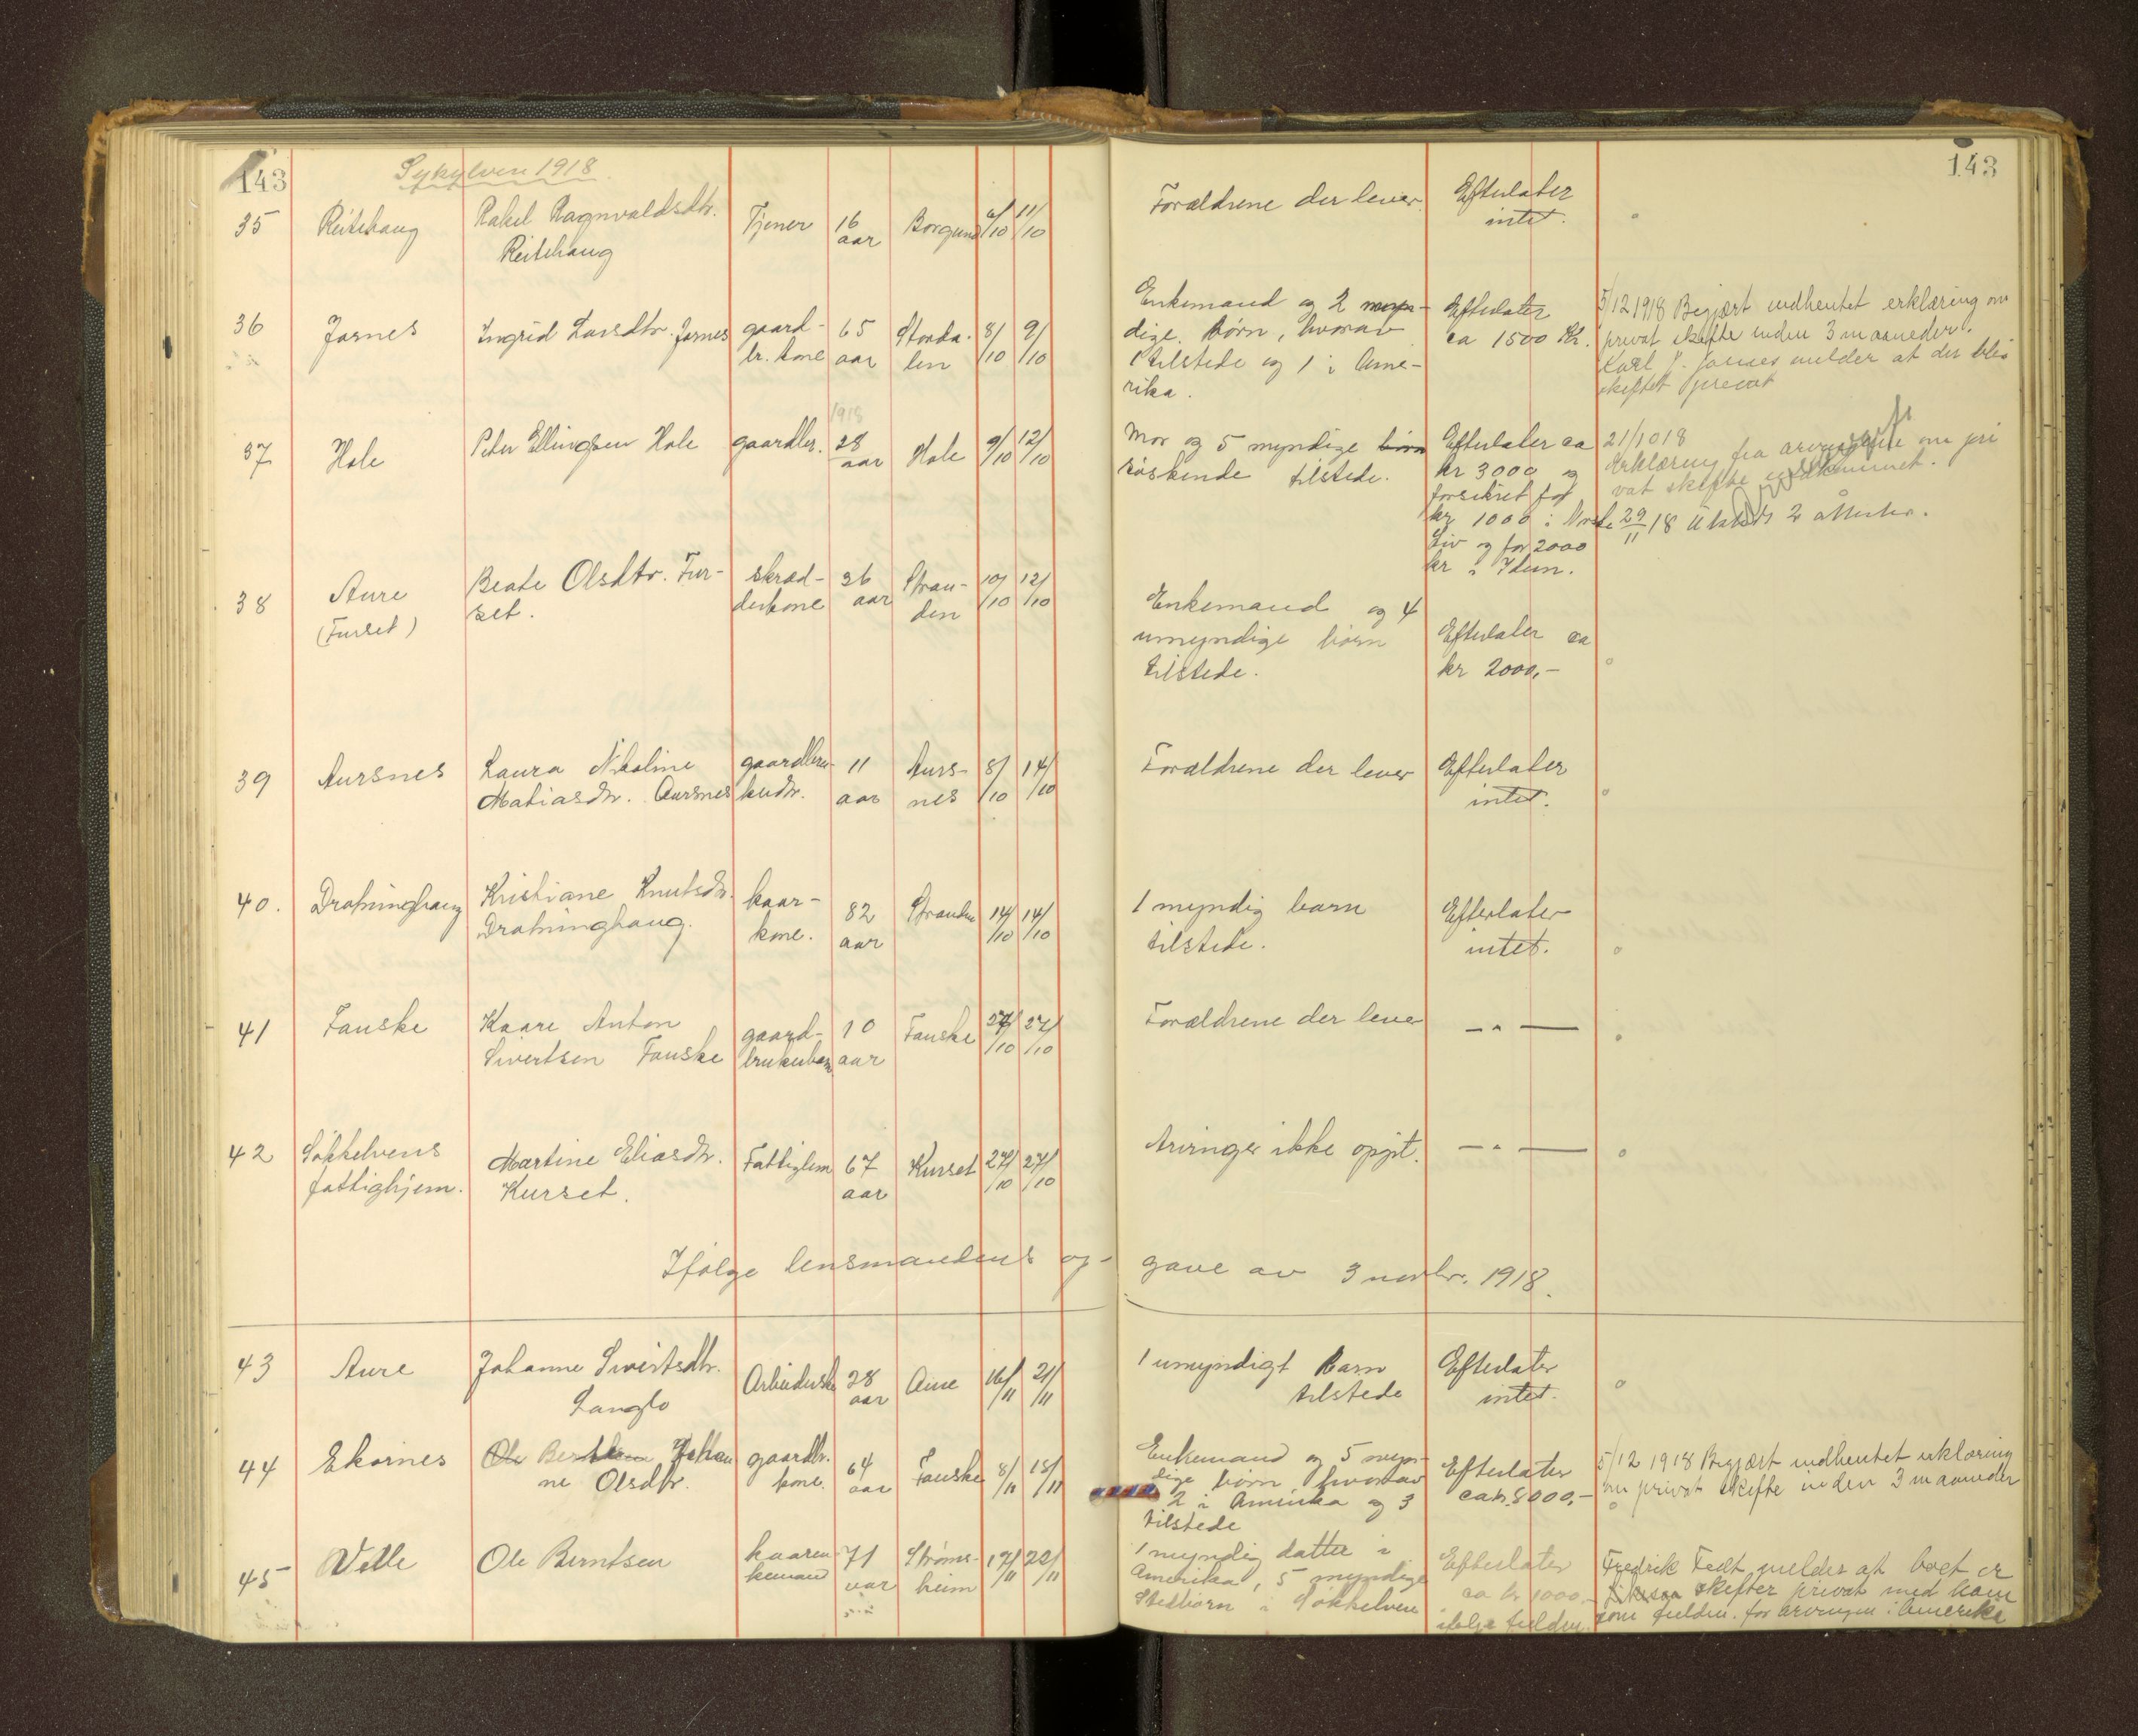 143
Sykylven 1918.
143
35 Reitehaug Rakel Ragnvaldsdtr. Tjener 16 Borgund 6/10 11/10 Forældrene der lever. Efterlater
Reitehaug aar intet.
36 Jarnes Ingrid Larsdtr. Jarnes gaard- 65 Storda- 8/10 9/10 Enkemand og 2 myn- Efterlater 5/12 1918 Begjært indhentet erklæring om
br. kone aar len dige børn, hvorav ca 1500 kr. privat skifte inden 3 maaneder.
1 tilstede og 1 i Ame- Karl J. Jarnes melder at der blir
rika. skiftet privat
1918
37 Hole Peter Ellingsen Hole gaardbr. 28 Hole 9/10 12/10 Mor og 5 myndige børn Efterlater ca 21/10 18
aar søskende tilstede. kr 3000 og Erklæring fra arvingerne om pri
forsikret for vat skifte indkommet.
kr 1000 i Norske 29/11 18 2 attester.
Liv og for 2000
kr i Idun.
38 Aure Beate Olsdtr. Fur- skræd- 26 Stran- 10/10 12/10 Enkemand og 4
(Furset) set. derkone aar den umyndige børn Efterlater ca
tilstede. kr 2000,-
39 Aursnes Laura Nikoline gaardbru- 11 Aurs- 8/10 14/10 Forældrene der lever Efterlater
Matiasdtr. Aursnes kerdtr. aar nes intet.
40. Drotninghaug Kristiane Knutsdtr. kaar- 82 Stranden 14/10 14/10 1 myndig barn Efterlater
Drotninghaug. kone. aar tilstede. intet.
41 Fauske Kaare Anton gaard- 10 Fauske 27/10 27/10 Forældrene der lever —"—
Sivertsen Fauske brukerbarn aar
42 Søkkelvens Martine Eliasdtr. Fattiglem 67 Kurset 27/10 27/10 Arvinger ikke opgit. —"—
fattighjem. Kurset. aar
Ifølge lensmandens op- gave av 3 novbr. 1918.
43 Aure Johanne Sivertsdtr. Arbeiderske 28 Aure 16/11 21/11 1 umyndigt barn Efterlater
Langlo aar tilstede intet.
44 Ekornes Ole Berntsen Johan gaardbr. 64 Fauske 8/11 18/11 Enkemand og 5 myn- Efterlater 5/12 1918 Begjært indhentet erklæring
ne Olsdtr. kone. aar dige børn, hvorav ca kr. 8000,- om privat skifte inden 3 maaneder
2 i Amerika og 3
tilstede
45 Velle Ole Berntsen kaaren- 71 Strøms- 17/11 22/11 1 myndig datter i Efterlater Fredrik Fedt melder at boet er
kemand aar heim Amerika, 5 myndige ca kr 1000.- skifter privat med ham
Stedbørn i Søkkelven ifølge fulldm. som fuldm. for arvingen i Amerika